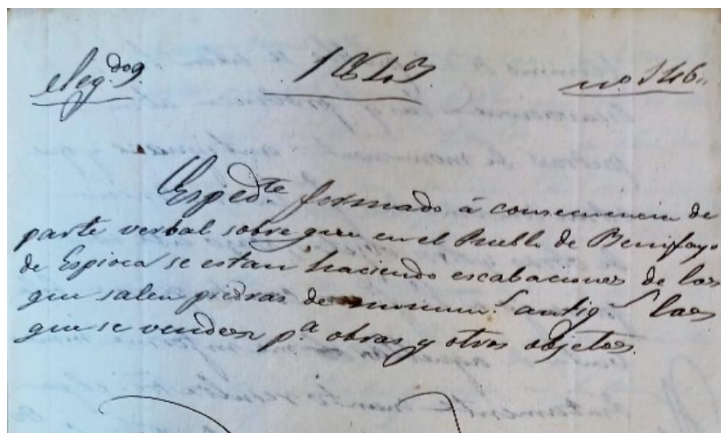 eleg.dos 1843 no. 146..
Esped.te formado á consecuencia de
parte verbal sobre que en el Pueblo de Benifayo
de Espioca se estan haciendo escabaciones de las
que salen piedras de monum.s antig.s las
que se venden p.a obras y otros objetos.